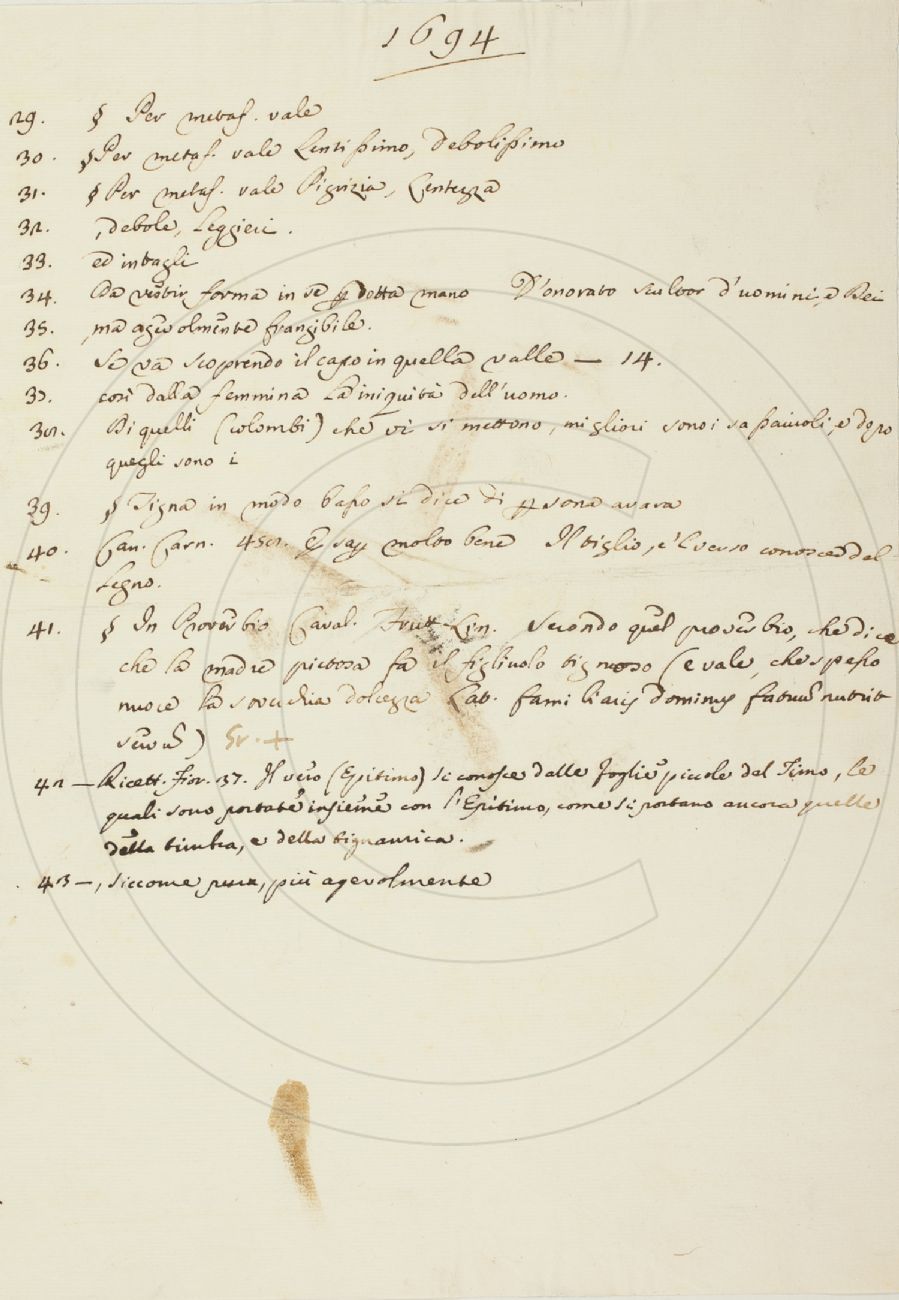 1694
29. § Per metaf. vale
30. § Per metaf. vale Lentissimo, Debolissimo
31. § Per metaf. vale Pigrizia, Lentezza
32. , debole, Leggieri.
33. ed intagli
34. Da vestir forma in se detta mano D'onorato scultor d'uomini, e Dei
35. , ma agevolmente frangibile.
36. Se va scoprendo il capo in quella valle — 14.
37. così dalla femmina La iniquità dell'uomo.
38. Di quelli (colombi) che vi si mettono, migliori sono i sassaiuoli, e dopo
quegli sono i
39. § Tigna in modo basso si dice di psona avara
40. Can. Carn. 458. E sap molto bene Il tiglio, e 'l verso conoscer del
Legno.
41. § In Proverbio Caval. Frutt. Lin. Secondo quel proverbio, che dice
che la madre pietosa fa il figliuolo tignoso (e vale, che spesso
nuoce la soverchia dolcezza Lat. familiaris dominus fatuum nutrit
servum) Gr. +
42 — Ricett. Fior. 37. Il vero (Epitimo) si conosce dalle foglie piccole del Timo, le
quali sono portate insieme con l'Epitimo, come si portano ancora quelle
della timbra, e della tignamica.
43 —, siccome pura, più agevolmente